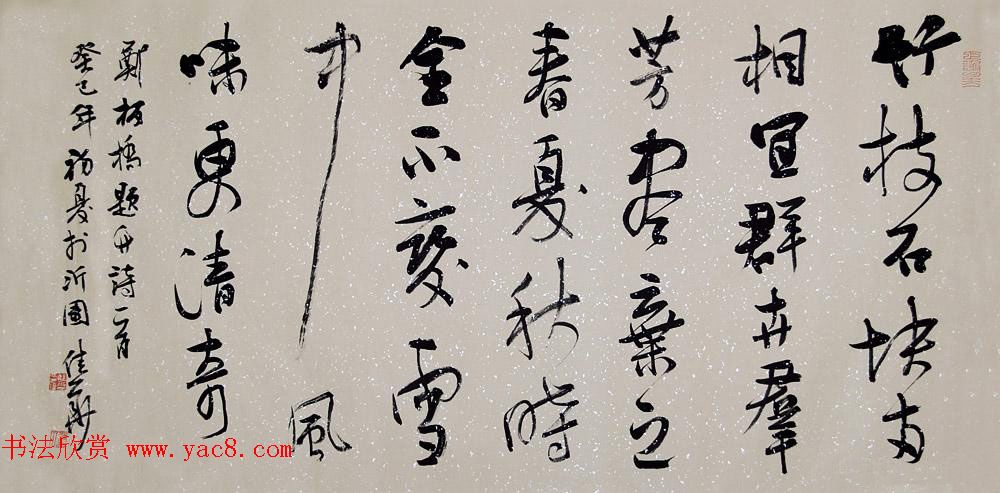 竹枝石块两
相宜群卉羣
芳尽棄之
春夏秋时
全不变雪
中風
味更清奇
鄭板橋題竹詩一首
癸巳年初夏於沂園
书法欣赏 www.yac8.com